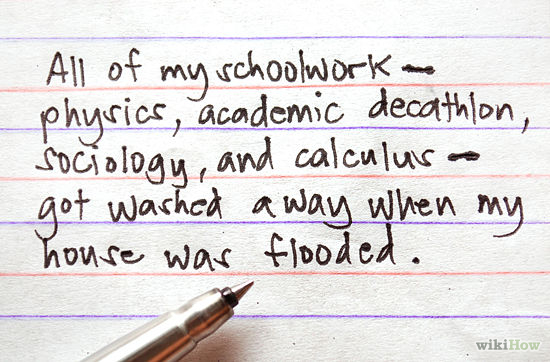 All of my schoolwork —
physics, academic decathlon,
sociology, and calculus —
got washed away when my
house was flooded.
wikiHow